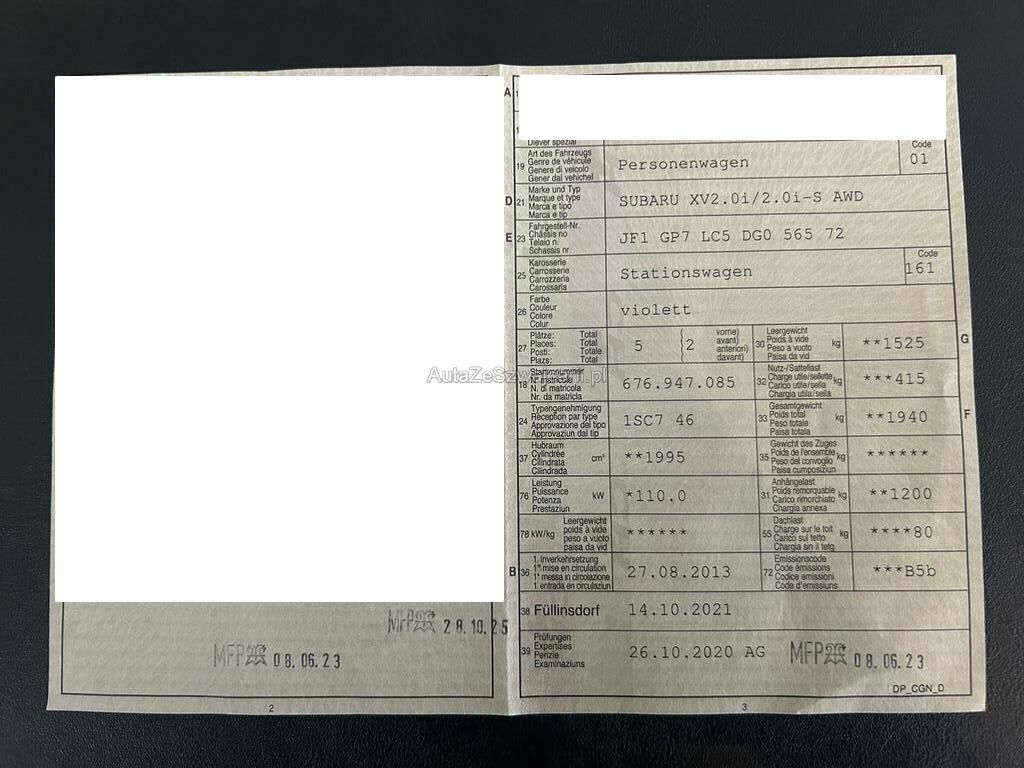 A
Diever spezial
Code
19 Art des Fahrzeugs
Genre de véhicule
Genere di veicolo
Gener dal vehichel
Personenwagen
01
D 21 Marke und Typ
Marque et type
Marca e tipo
Marca e tip
SUBARU XV2.0i/2.0i-S AWD
E 23 Fahrgestell-Nr.
Châssis no
Telaio n.
Schassis nr.
JF1 GP7 LC5 DG0 565 72
Code
25 Karosserie
Carrosserie
Carrozzeria
Carossaria
Stationswagen
161
26 Farbe
Couleur
Colore
Colur
violett
27 Plätze: Total
Places: Total
Posti: Totale
Plazs: Total
5 (2 vorne)
avant)
anteriori)
davant)
30 Leergewicht
Poids à vide
Peso a vuoto
Paisa da vid
kg **1525
G
18 Stammnummer
N° matricule
N. di matricola
Nr. da matricla
676.947.085
32 Nutz-/Sattellast
Charge utile/sellette
Carico utile/sella
Chargia utila/sella
kg ***415
AutaZeSzwajcarii.pl
24 Typengenehmigung
Réception par type
Approvazione del tipo
Approvaziun dal tip
1SC7 46
33 Gesamtgewicht
Poids total
Peso totale
Paisa totala
kg **1940
F
37 Hubraum
Cylindrée
Cilindrata
Cilindrada
cm³ **1995
35 Gewicht des Zuges
Poids de l'ensemble
Peso del convoglio
Paisa cumposiziun
kg ******
76 Leistung
Puissance
Potenza
Prestaziun
kW *110.0
31 Anhängelast
Poids remorquable
Carico rimorchiato
Chargia annexa
kg **1200
78 kW/kg Leergewicht
poids à vide
peso a vuoto
paisa da vid
******
55 Dachlast
Charge sur le toit
Carico sul tetto
Chargia sin il tetg
kg ****80
B 36 1. Inverkehrsetzung
1re mise en circulation
1a messa in circolazione
1. entrada en circulaziun
27.08.2013
72 Emissionscode
Code émissions
Codice emissioni
Code d'emissiuns
***B5b
38 Füllinsdorf 14.10.2021
39 Prüfungen
Expertises
Perizie
Examinaziuns
26.10.2020 AG MFP 08.06.23
DP_CGN_D
3
MFP 28.10.25
MFP 08.06.23
2